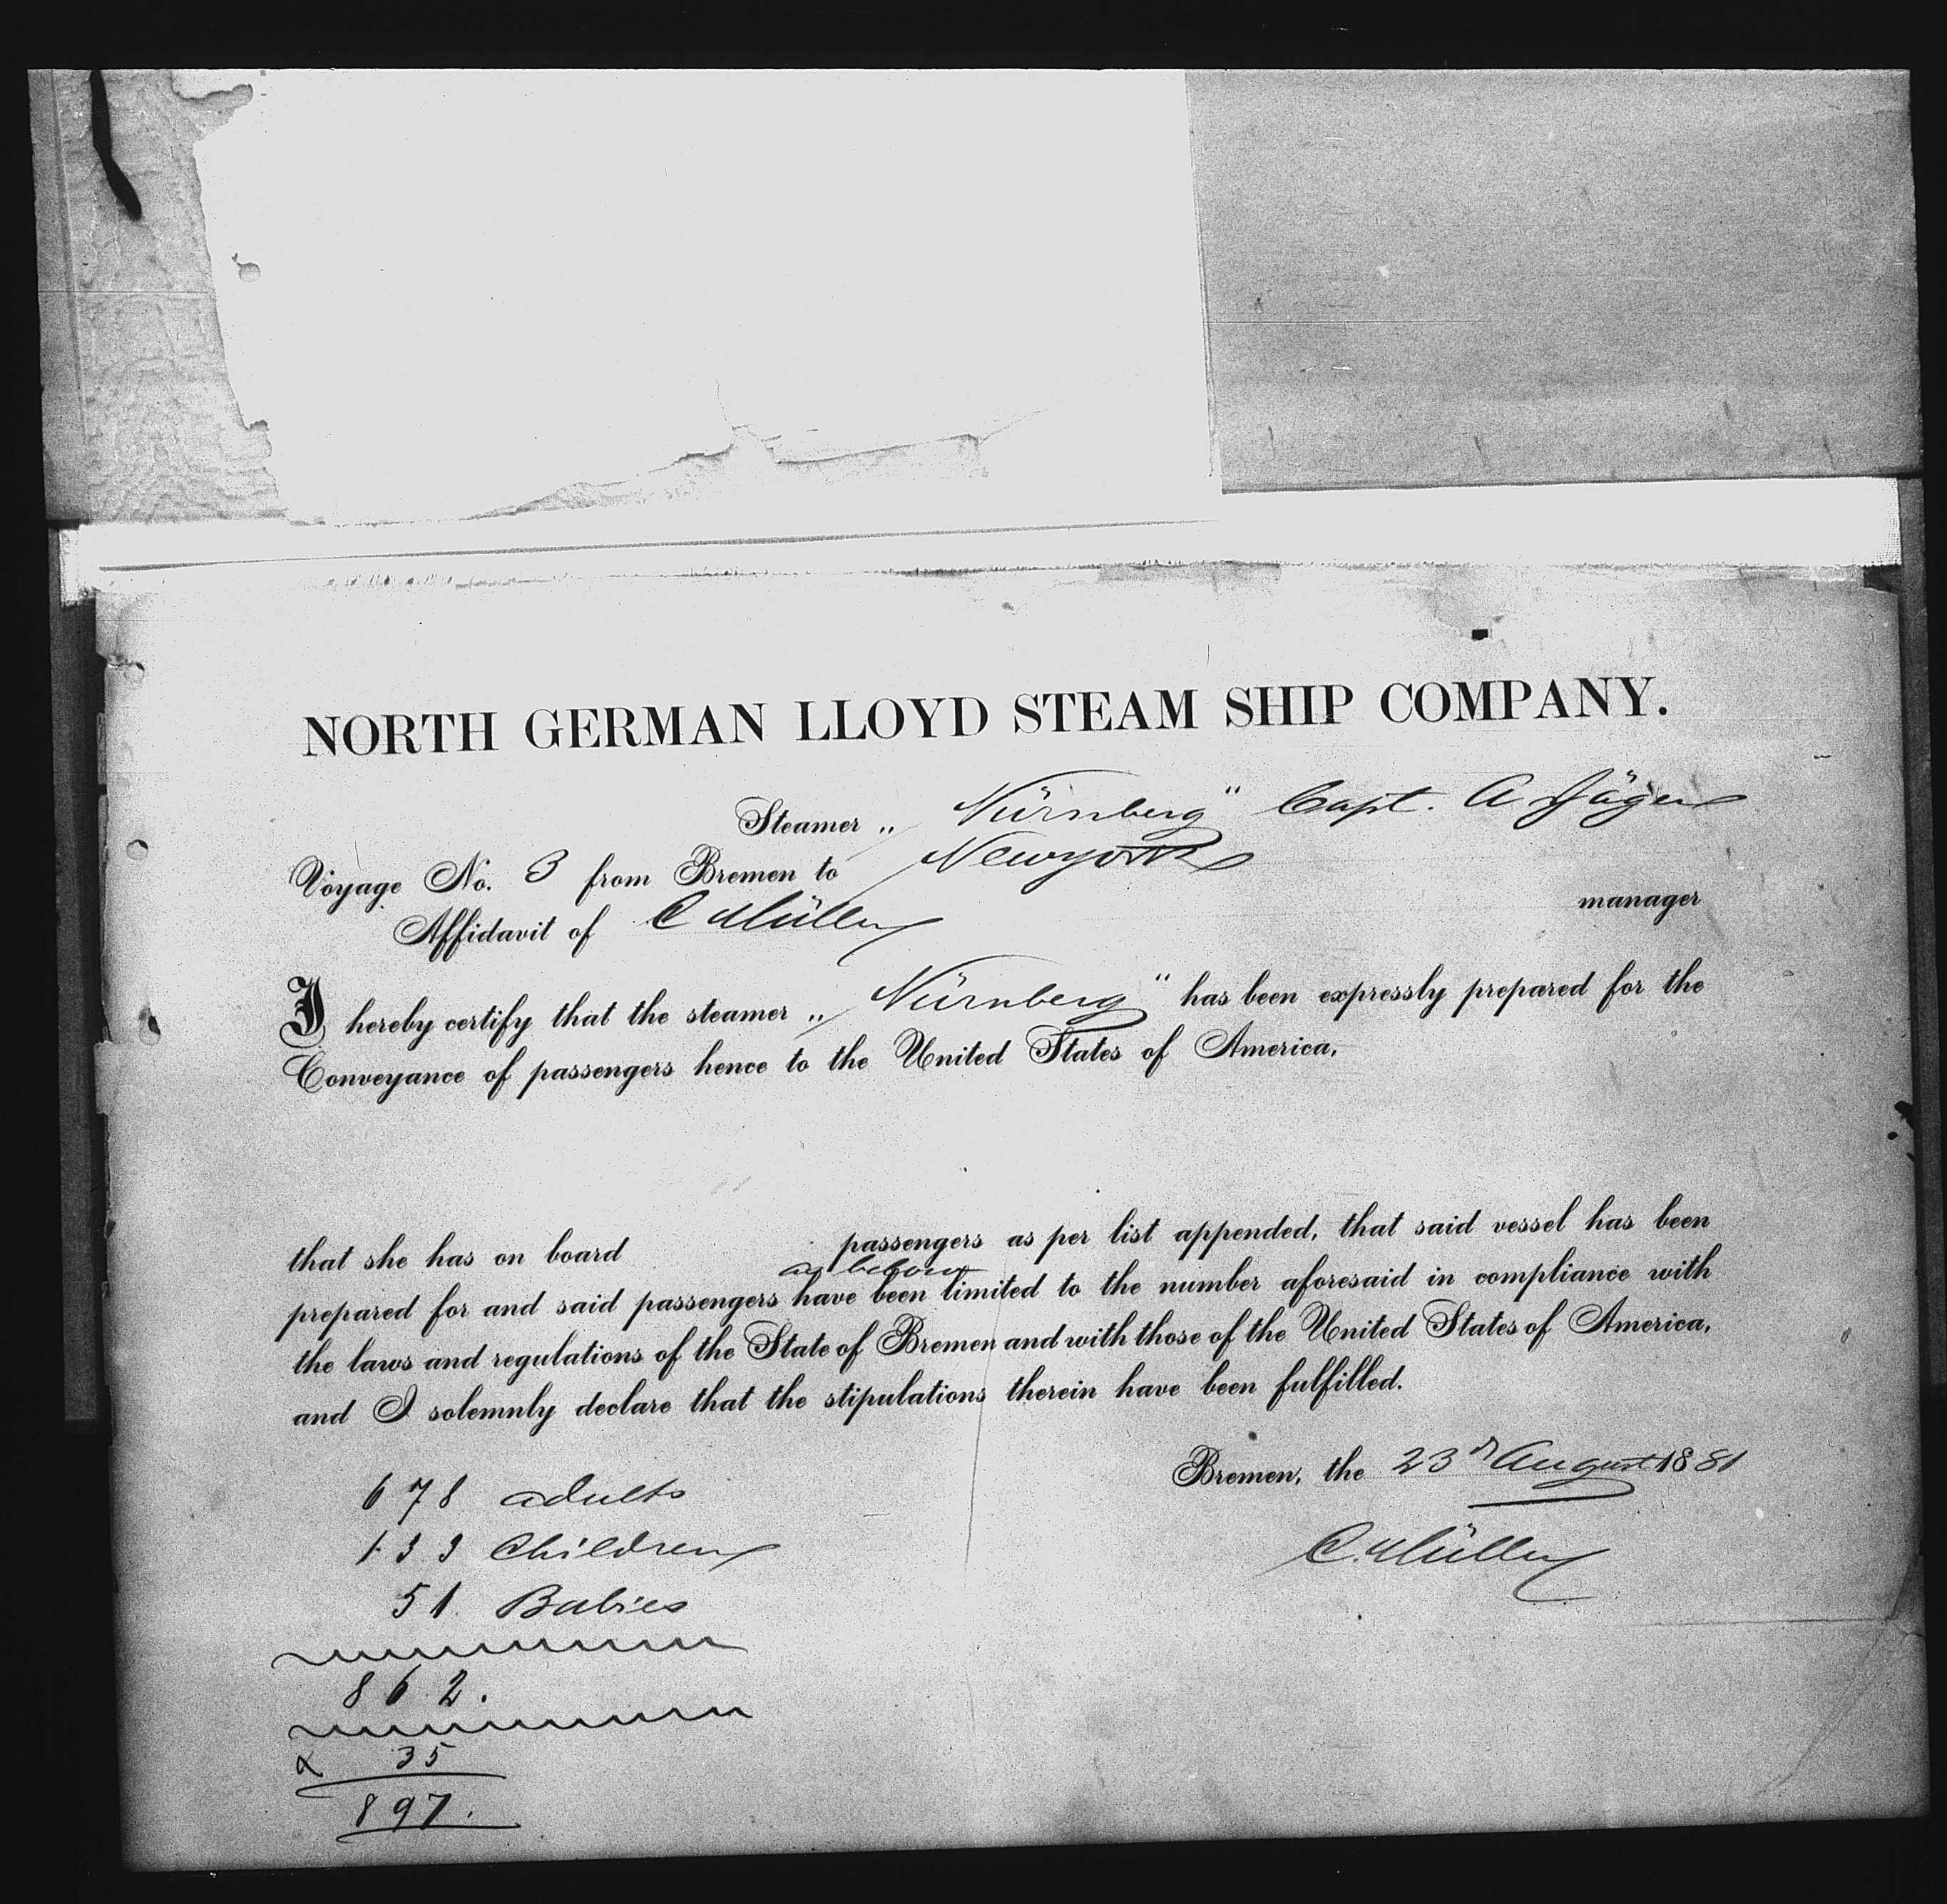 NORTH GERMAN LLOYD STEAM SHIP COMPANY.
Steamer „ Nürnberg" Capt. A Jäger
Voyage No. 3 from Bremen to Newyork
manager
Affidavit of C Müller
I hereby certify that the steamer „ Nürnberg" has been expressly prepared for the
Conveyance of passengers hence to the United States of America,
that she has on board passengers as per list appended, that said vessel has been
as below
prepared for and said passengers have been limited to the number aforesaid in compliance with
the laws and regulations of the State of Bremen and with those of the United States of America,
and I solemnly declare that the stipulations therein have been fulfilled.
Bremen, the 23d August 1881
C. Müller
678 adults
133 Children
51 Babies
862.
35
897.